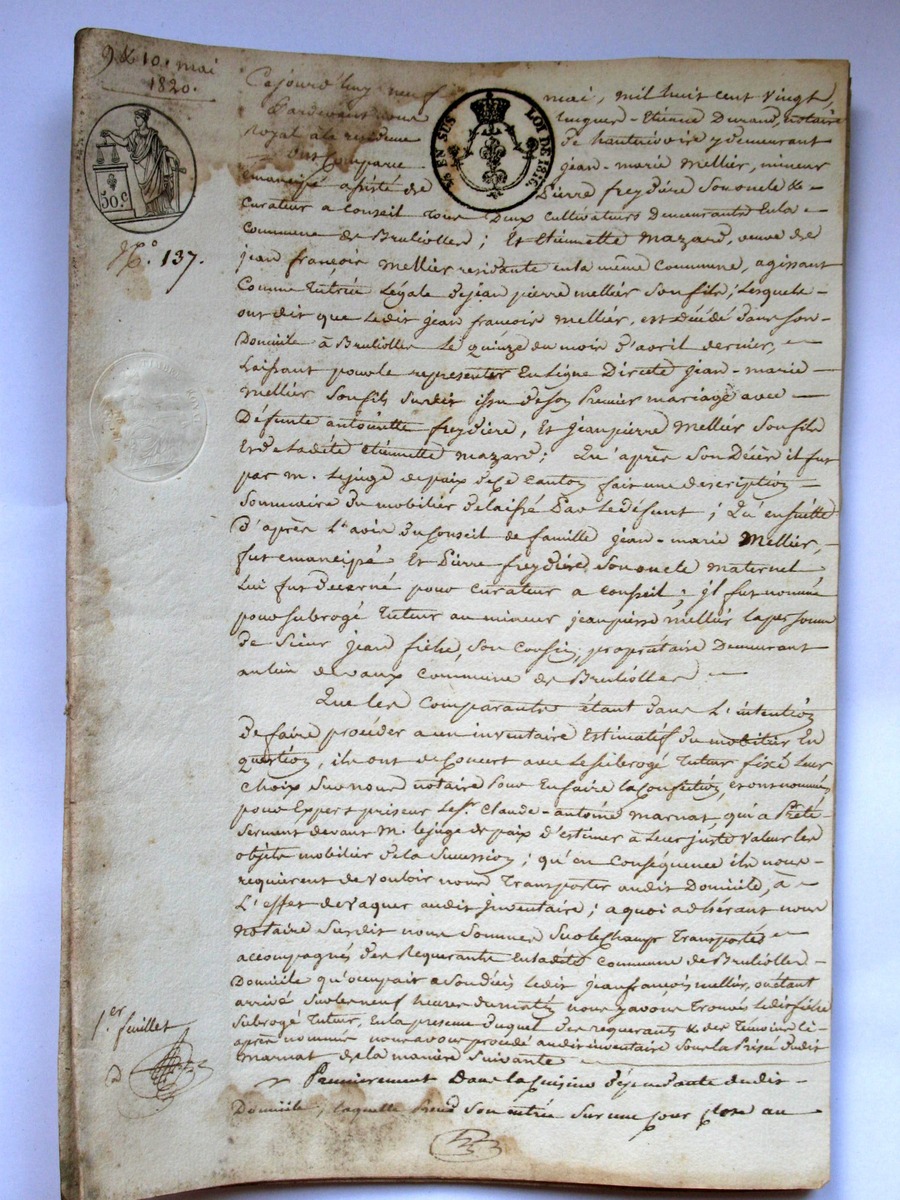 9 & 10 mai
1820.
50 C
EN SUS
LOI DE 1816
N.o 137.
Cejourd'huy neuf mai, mil huit cent vingt,
Pardevant nous Etienne Durand, notaire
royal à la résidence de hauterivoire y demeurant
ont comparu jean-marie Mellier, mineur
emancipé assisté de Pierre freydiere Son oncle &
Curateur a conseil tous Deux Cultivateurs Demeurants En la
Commune de Bruliolles ; Et Etiennette Mazard, veuve de
jean françois Mellier residante en la même Commune, agissant
Comme Tutrice Légale de jean pierre mellier Son fils ; Lesquels
ont dit que Ledit jean francois Mellier, est Décédé Dans Son
Domicile à Bruliolles Le quinze du mois D'avril dernier,
Laissant pour le representer En Ligne Directe jean-marie
Mellier Son fils Susdit issu de Son Premier mariage avec
Défunte antoinette freydière, Et jean pierre Mellier Son fils
Et de Ladite Etiennette Mazard ; Qu'après Son Décès il fut
par m. Le juge de paix de Ce Canton fait une description
Sommaire du mobilier Délaissé Par Le défunt ; Qu'ensuitte
D'après L'avis du Conseil de famille jean-marie Mellier,
fut emancipé Et Pierre freydière Son oncle maternel
Lui fut Décerné pour Curateur a conseil ; il fut nommé
pour Subrogé Tuteur au mineur jean pierre Mellier la personne
De Sieur jean fiche, Son Cousin, propriétaire Demeurant
au lieu de vaux Commune de Bruliolles
Que les Comparants étant Dans L'intention
De faire procéder a un inventaire Estimatif du mobilier En
question, ils ont de Concert avec Le Subrogé Tuteur fixé Leur
Choix Sur nous notaire Pour En faire la Confection, et ont nommés
pour Expert priseur Le Sr. Claude-antoine Marnat, qui a Prêté
Serment devant M. Le juge de paix d'estimer à Leur juste valeur Les
objets mobilier de la Succession ; qu'en Conséquence ils nous
requierent de vouloir nous Transporter audit Domicile, à
L'effet de vaquer audit inventaire ; a quoi adhérant nous
notaire Susdit nous Sommes Sur le Champ Transportés
accompagnés des Requerants En Ladite Commune de Bruliolles
Domicile qu'occupait a Son décès Ledit jean françois mellier, où étant
arrivé Sur les neuf heures du matin nous y avons Trouvé Ledit fiche
Subrogé Tuteur, En la presence duquel des requerants & des Témoins Ci-
après nommés nous avons procédé audit inventaire Sous la Prisée dudit
Marnat de la manière Suivante
Premierement Dans la Cuisine Dépendante dudit
Domicile, laquelle Prend Son entrée Sur une Cour close au
1.er feuillet